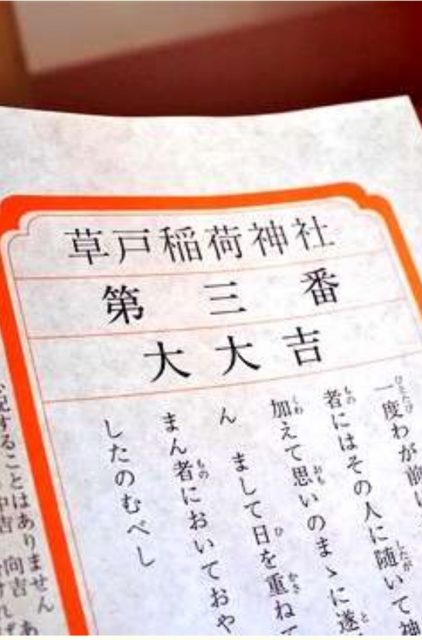 草戸稲荷神社
第三番
大大吉
一度わが前に
者にはその人に随いて神
加えて思いのまゝに遂
ん　まして日を重ね
まん者においておや
したのむべし
することはありません